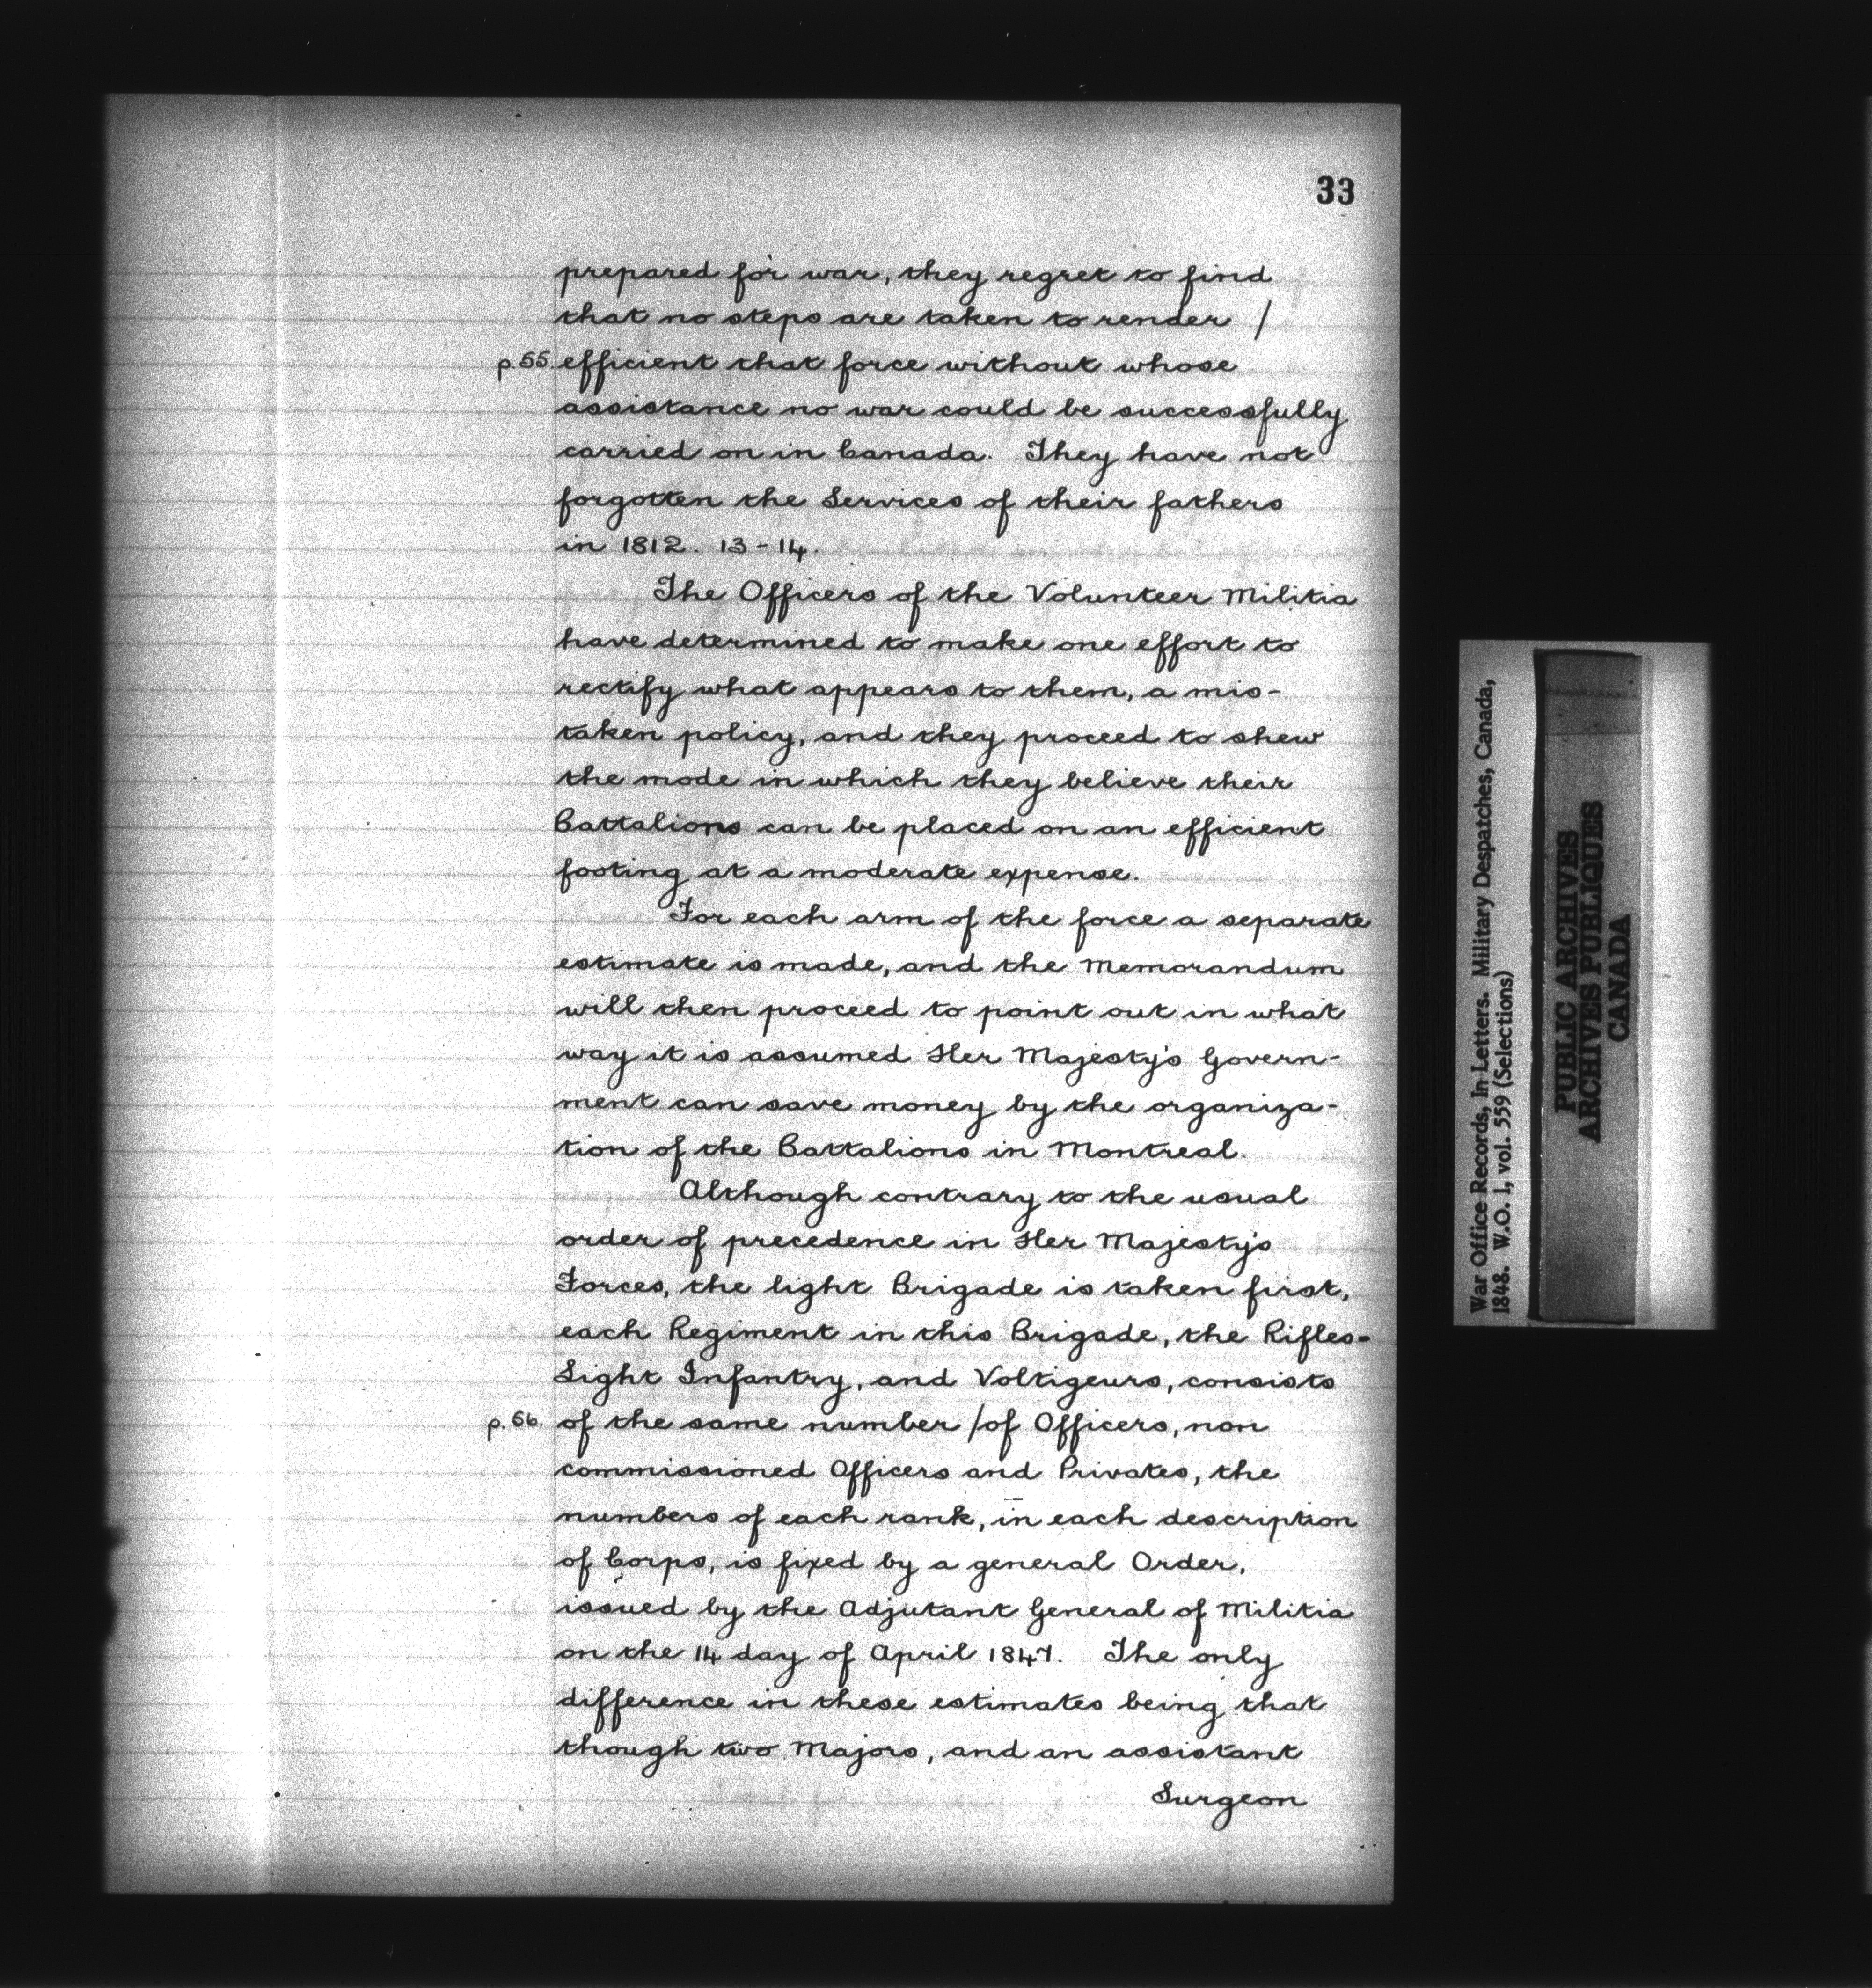 33
prepared for war, they regret to find
that no steps are taken to render /
p.55. efficient that force without whose
assistance no war could be successfully
carried on in Canada. They have not
forgotten the Services of their fathers
in 1812. 13-14.
The Officers of the Volunteer Militia
have determined to make one effort to
rectify what appears to them, a mis-
taken policy, and they proceed to shew
the mode in which they believe their
Battalions can be placed on an efficient
footing at a moderate expense.
For each arm of the force a separate
estimate is made, and the Memorandum
will then proceed to point out in what
way it is assumed Her Majesty's Govern-
ment can save money by the organiza-
tion of the Battalions in Montreal.
Although contrary to the usual
order of precedence in Her Majesty's
Forces, the light Brigade is taken first,
each Regiment in this Brigade, the Rifles-
Light Infantry, and Voltigeurs, consists
p.56. of the same number / of Officers, non
commissioned Officers and Privates, the
numbers of each rank, in each description
of Corps, is fixed by a general Order,
issued by the Adjutant General of Militia
on the 14 day of April 1847. The only
difference in these estimates being that
though two Majors, and an assistant
Surgeon
War Office Records, In Letters. Military Despatches, Canada,
1848. W.O. 1, vol. 559 (Selections)
PUBLIC ARCHIVES
ARCHIVES PUBLIQUES
CANADA